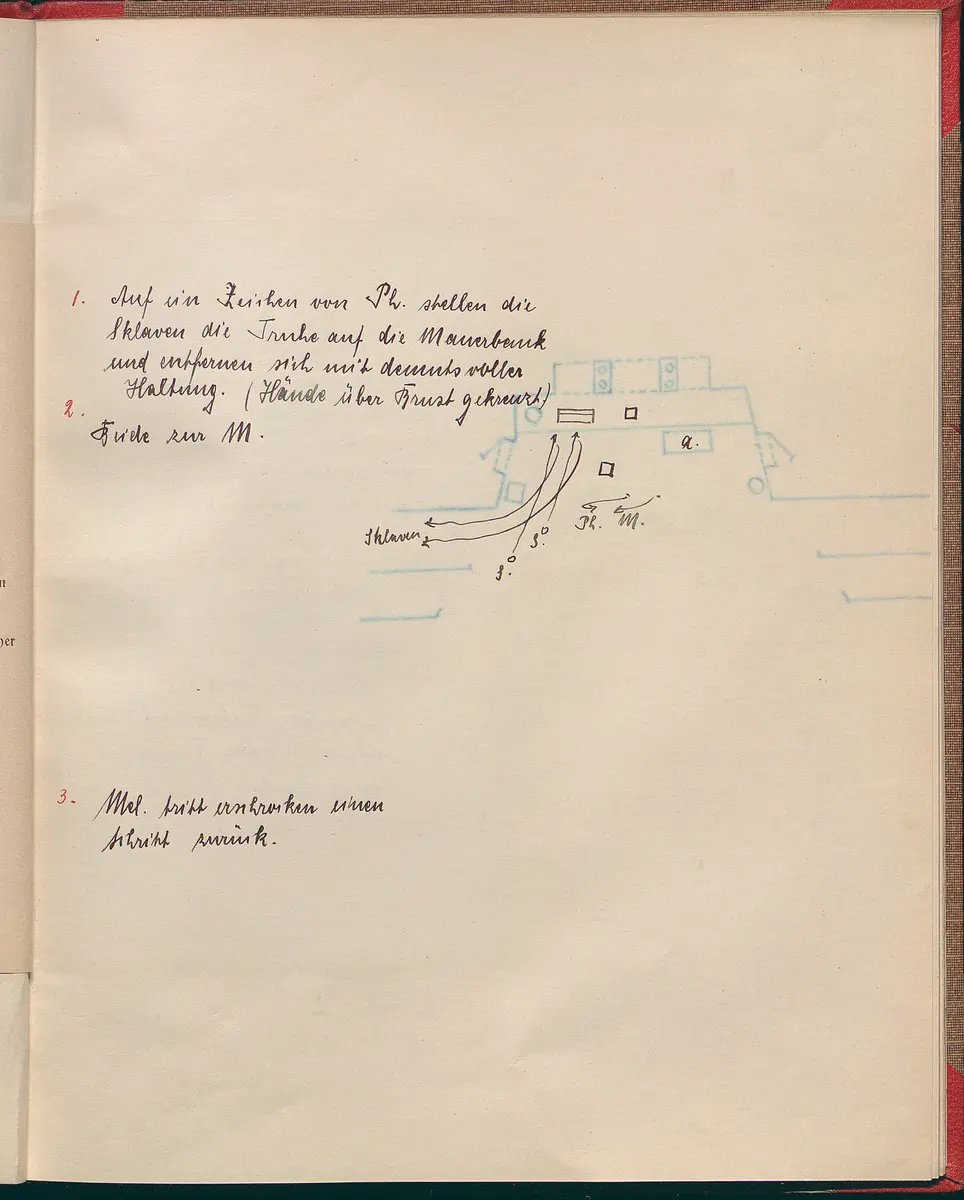 1. Auf ein Zeichen von Ph. stellen die
Sklaven die Truhe auf die Mauerbank
und entfernen sich mit demutsvoller
Haltung. (Hände über Brust gekreuzt)
2.
Beide zur M.
a.
Ph. M.
Sklaven
S.
S.
n
her
3. Mel. tritt erschrocken einen
Schritt zurück.